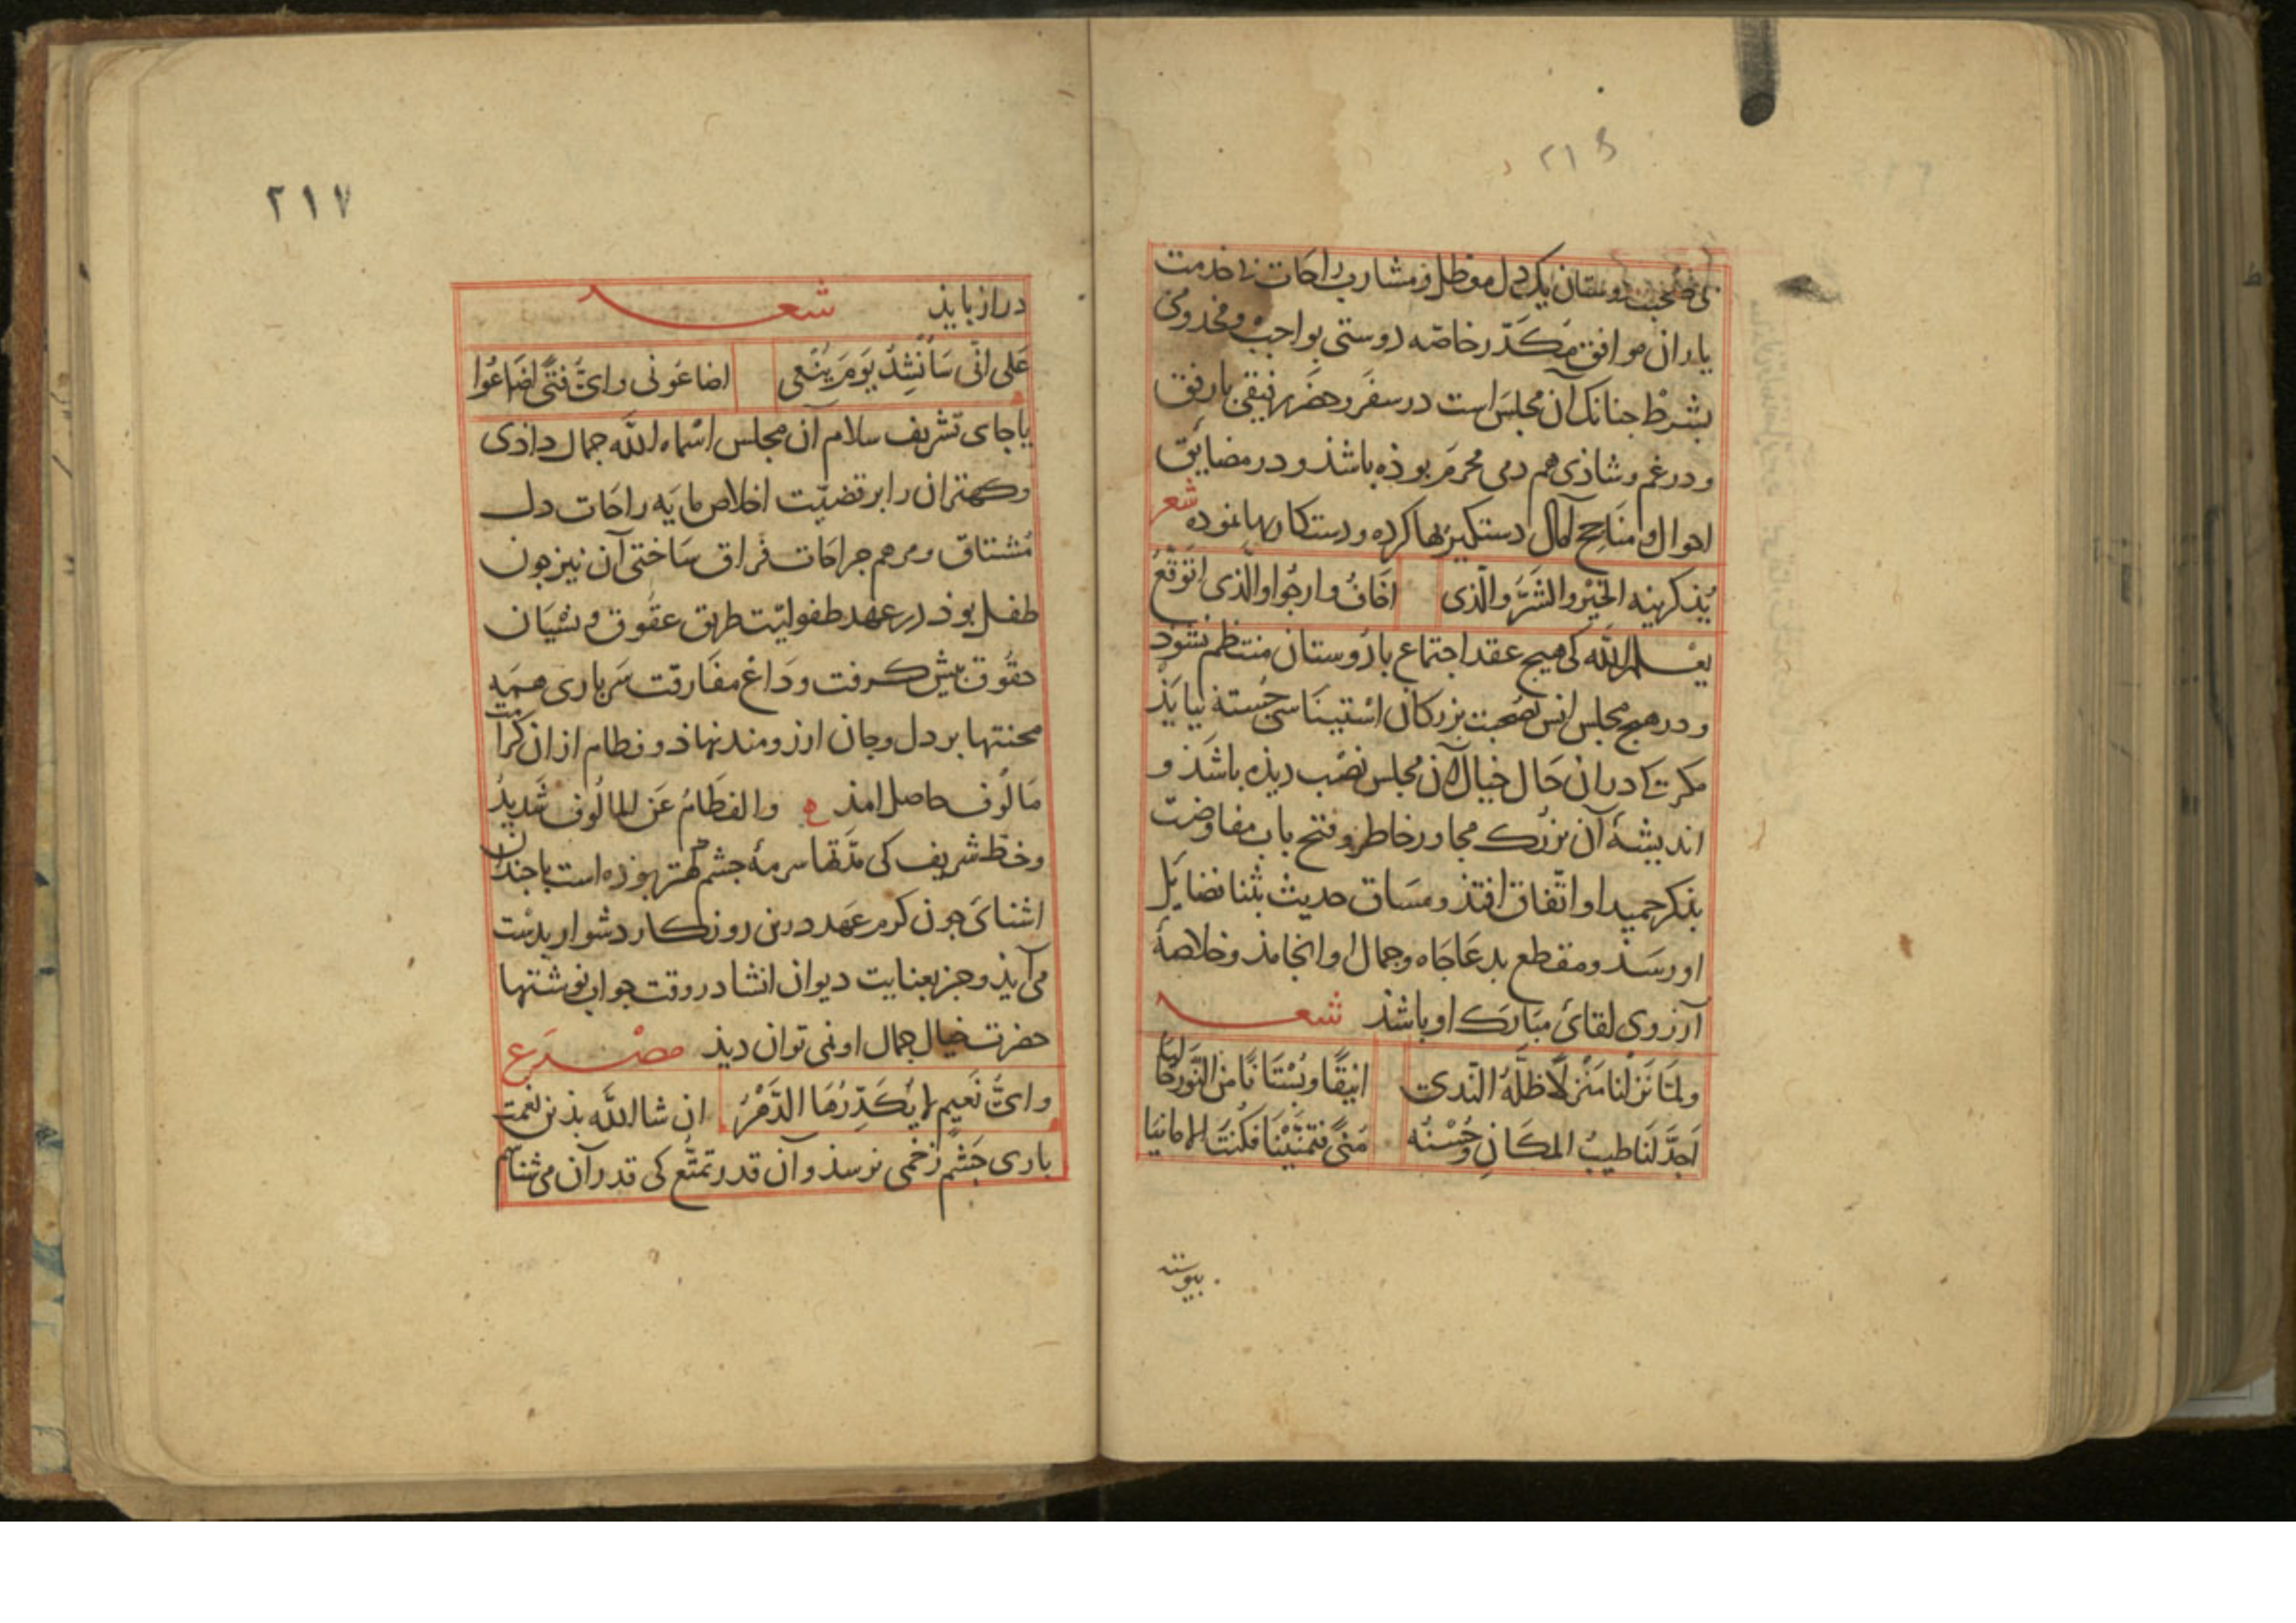 ۲۱۶
بی صحبت دوستان یکدل مغطل و مشارب راحات بی خدمت
یاران موافق مکدّر خاصّه دوستی بواجب و مخدومی
بشرط جنانک آن مجلس است در سفر و حضر رفیقی بارفق
و در غم و شاذی هم دمی محرم بوذه باشذ و در مضایق
احوال و مناجح آمال دستکیریها کرده و دستکاریها نموده شعر
یُذکرینه الخیر والشرّ والّذی اخاف وارجوا والّذی اتوقّع
یعلم الله کی هیج عقد اجتماع با دوستان منتظم نشوذ
و در هیج مجلس انس بصحبت بزرکان استیناسی جُسته نیایذ
مکر کی در ان حال خیال آن مجلس نصب دیذه باشذ و
اندیشهٔ آن بزرک مجاور خاطر و فتح باب مفاوضت
بذکر حمید او اتّفاق افتذ و مساق حدیث بثنا فضایل
او رسذ و مقطع بدعا جاه و جمال او انجامذ و خلاصهٔ
آرزوی لقائ مبارک او باشذ شعـــر
ولمّا نزلنا منزلًا ظلّه الندی انیقًا وبُستانًا من النَّور حالیا
اجدّ لنا طیبُ المکانِ وحُسْنُه مُنیً فتمنّیْنا فکنتَ الامانیا
پیوسته
۲۱۷
دراز بایذ شعـــر
علی انّی سَاُنْشِدُ یَومَ بیعی اضاعُونی وایَّ فتًی اضاعُوا
یا جای تشریف سلام آن مجلس اسماه الله جمال داذی
و کهتران را بر قضیّت اخلاص مایه راحات دل
مُشتاق و مرهم جراحات فراق ساختی آن نیز جون
طفل بوذ در عهد طفولیّت طریق عقوق و نسیان
حقوق پیش کرفت و داغ مفارقت سرباری همه
محنتها بر دل و جان ارزومند نهاذ و فطام از ان کرامت
مالوف حاصل امذ ع والفطامُ عَن المالُوف شَدیدُ
و خط شریف کی مدّتها سرمهٔ جشم کهتر بوذه است با جندان
اشنائ جون کرم عهد درین روزکار دشوار بدست
می آیذ و جز بعنایت دیوان انشا در وقت جواب نوشتها
حضرت خیال جمال او نمی توان دیذ مصـــرع
وایُّ نَعیمٍ لا یُکَدِّرُهَا الدَّهْرُ ان شا الله بذین نعمت
باری جشم زخمی نرسذ و آن قدر تمتّع کی قدر آن می شناسم